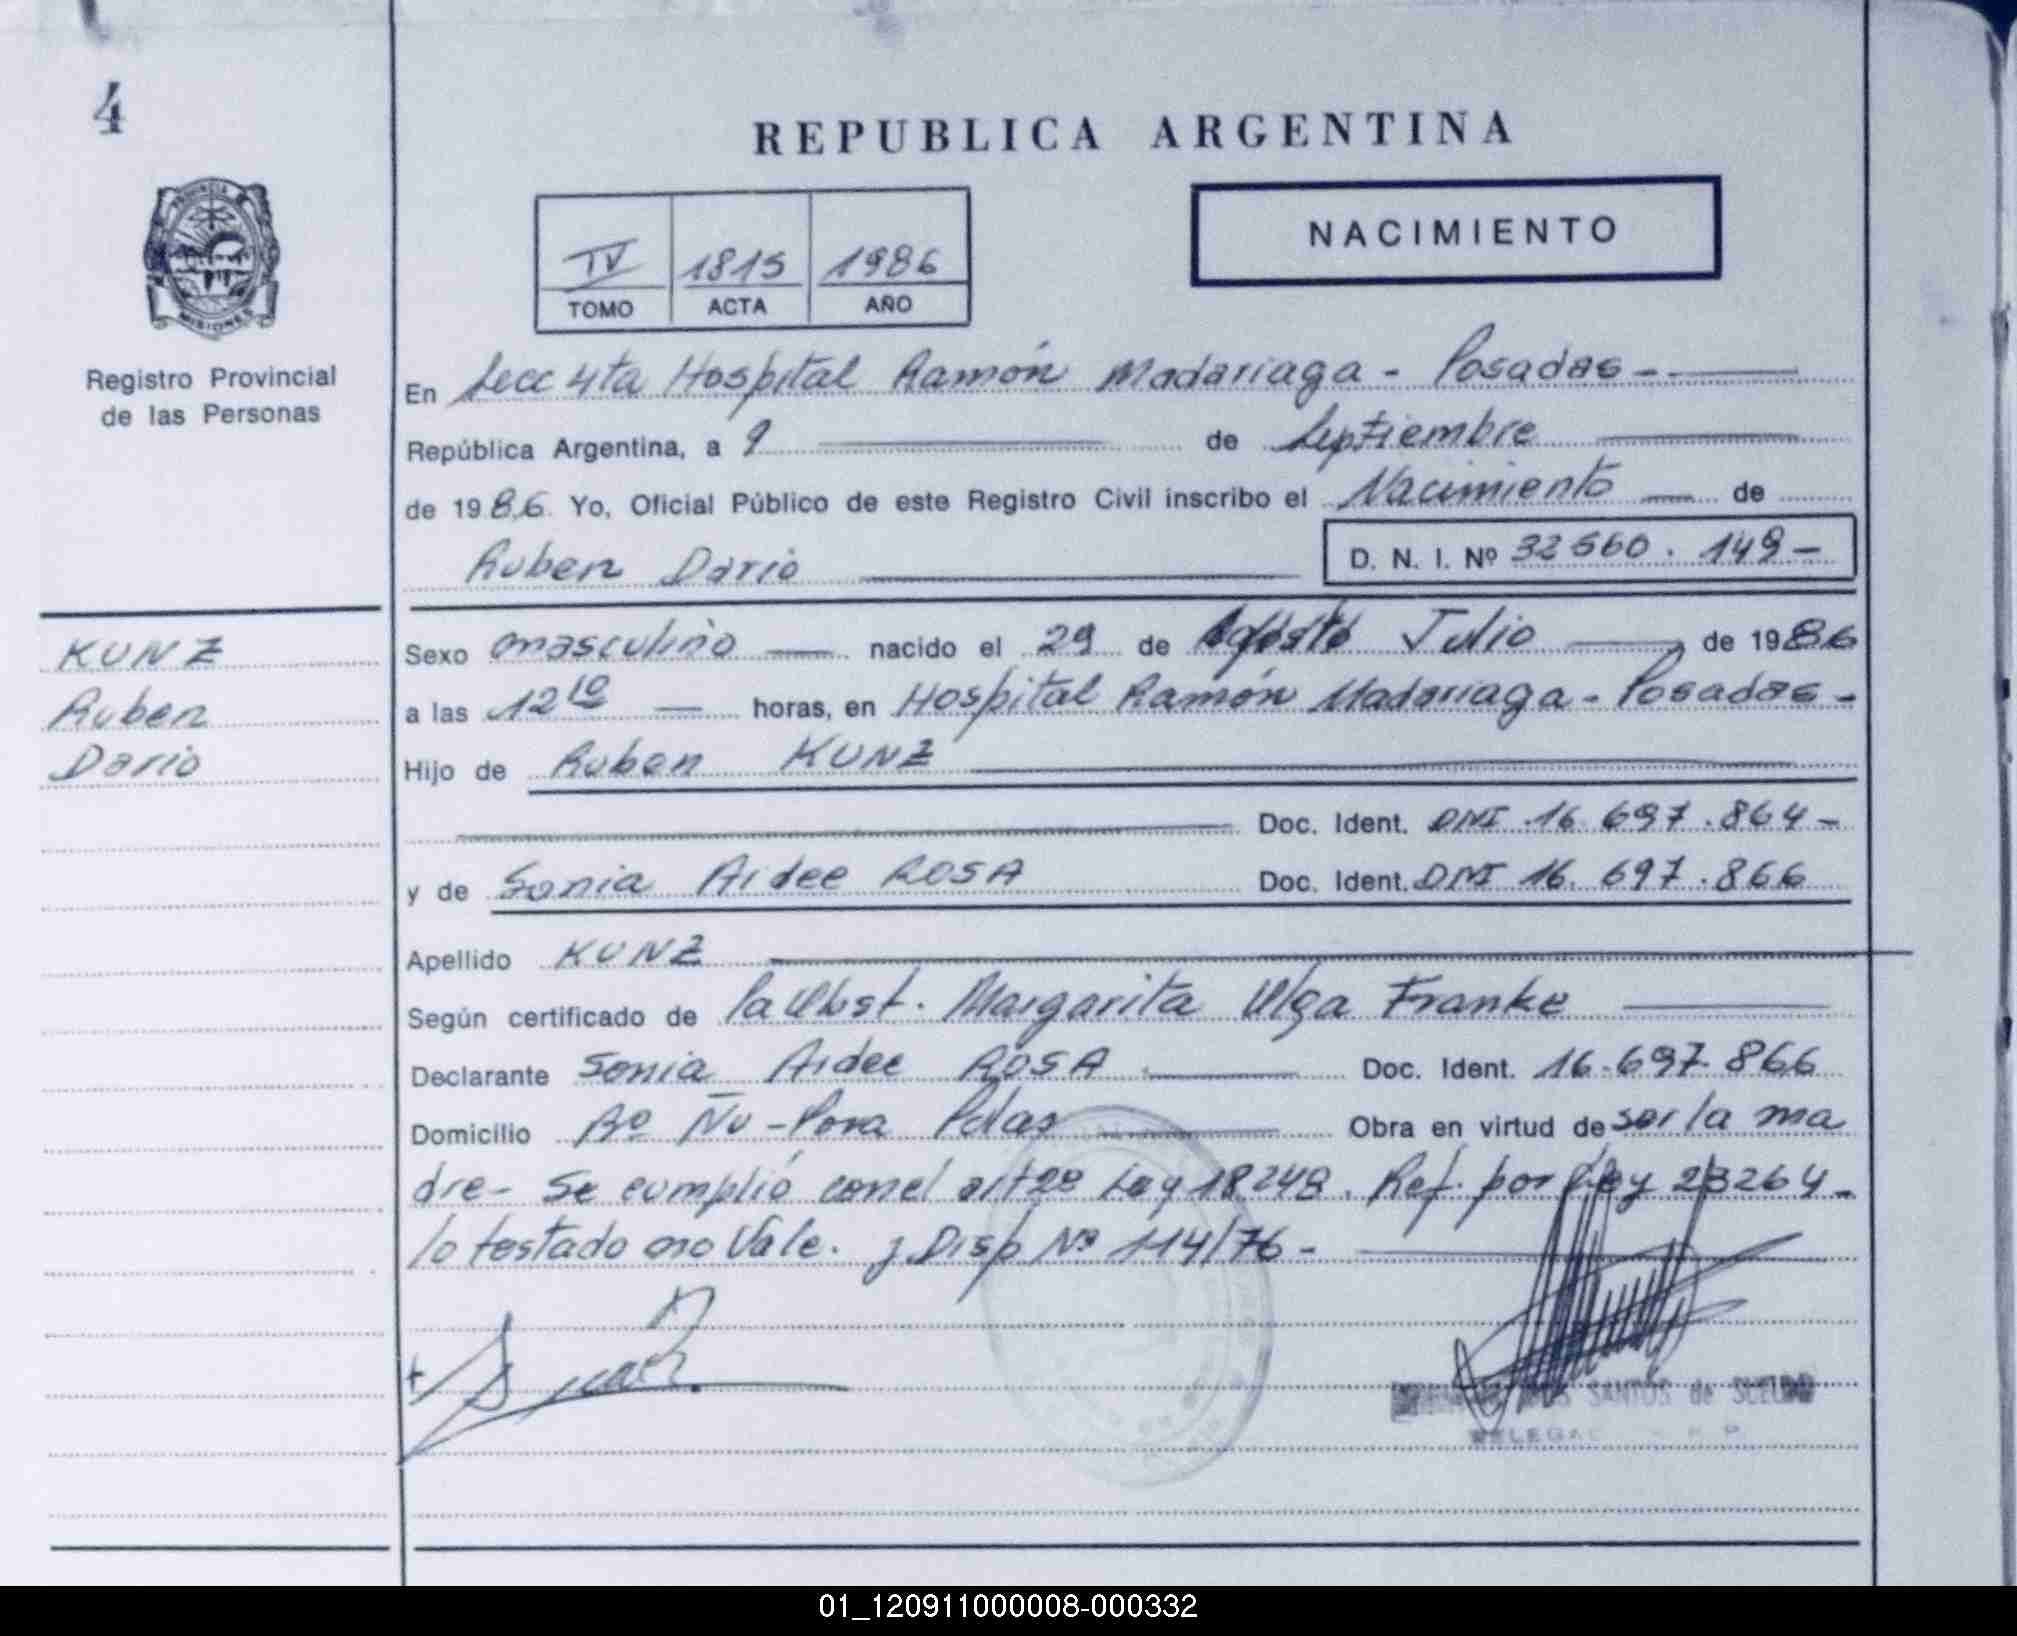 4
REPUBLICA ARGENTINA
PROVINCIA
MISIONES
Registro Provincial
de las Personas
NACIMIENTO
IV 1815 1986
TOMO ACTA AÑO
En Secc 4ta Hospital Ramón Madariaga - Posadas -
República Argentina, a 9 de Septiembre
de 1986 Yo, Oficial Público de este Registro Civil inscribo el Nacimiento de
Ruben Dario D. N. I. Nº 32560.149-
KUNZ
Ruben
Dario
Sexo masculino nacido el 29 de Agosto Julio de 1986
a las 12 10 horas, en Hospital Ramón Madariaga - Posadas -
Hijo de Ruben KUNZ
Doc. Ident. DNI 16.697.864-
y de Sonia Aidee ROSA Doc. Ident. DNI 16.697.866
Apellido KUNZ
Según certificado de la Obst. Margarita Olga Franke
Declarante Sonia Aidee ROSA Doc. Ident. 16.697.866
Domicilio Bº Ñu-Pora Pdas Obra en virtud de ser la ma
dre- Se cumplió con el art 2º Ley 18248. Ref. por Ley 23264-
lo testado no Vale. y Disp Nº 114/76-
SANTOS de SUELDO
01_120911000008-000332